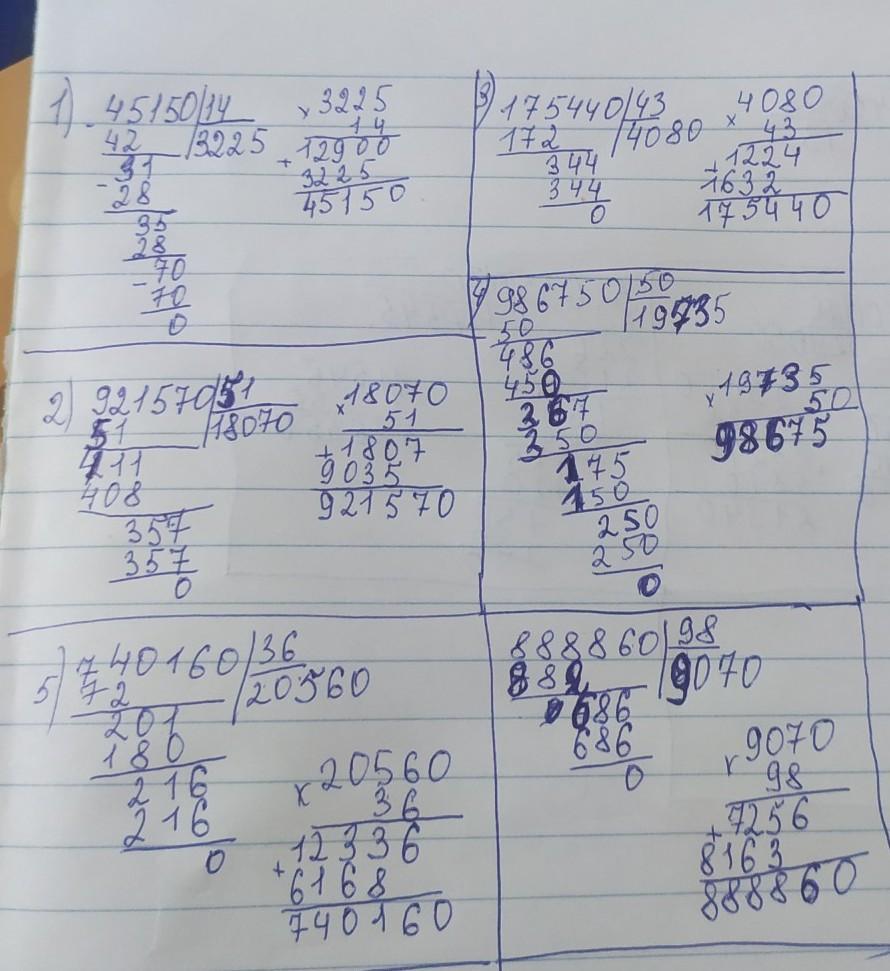 1) 45150 | 14
- 42 | 3225
31
- 28
35
28
- 70
70
0
× 3225
14
+ 12900
3225
45150
2) 921570 | 51
51 | 18070
411
408
357
357
0
× 18070
51
+ 1807
9035
921570
3) 175440 | 43
172 | 4080
344
344
0
× 4080
43
+ 1224
1632
175440
4) 986750 | 50
50 | 19735
486
450
367
350
175
150
250
250
0
× 19735
50
98675
5) 740160 | 36
72 | 20560
201
180
216
216
0
× 20560
36
+ 12336
6168
740160
888860 | 98
882 | 9070
686
686
0
× 9070
98
+ 7256
8163
888860